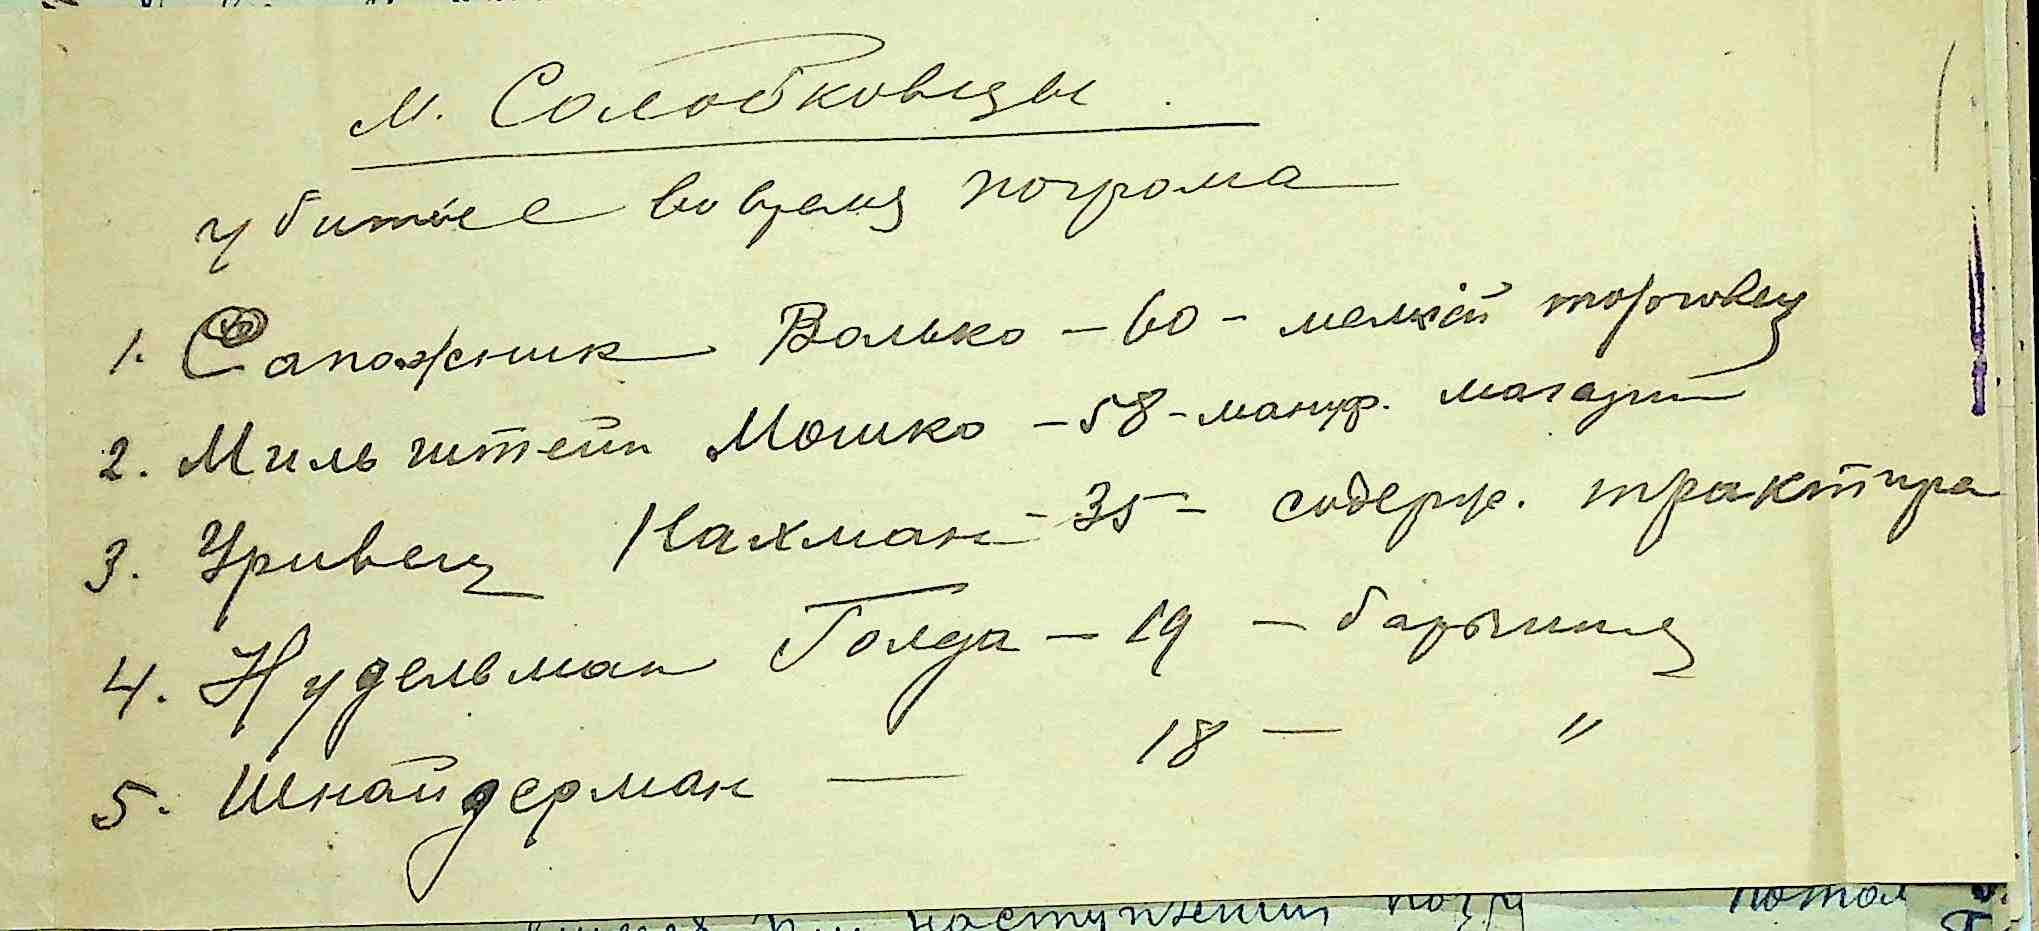 м. Солобковцы
убитые во время погрома
1. Сапожник Волько - 60 - мелкій торговец
2. Мильштейн Мошко - 58 - мануф. магазин
3. Уривец Нахман - 35 - содерж. трактира
4. Нудельман Голда - 19 - барышня
5. Шнайдерман — 18 — "
наступлении